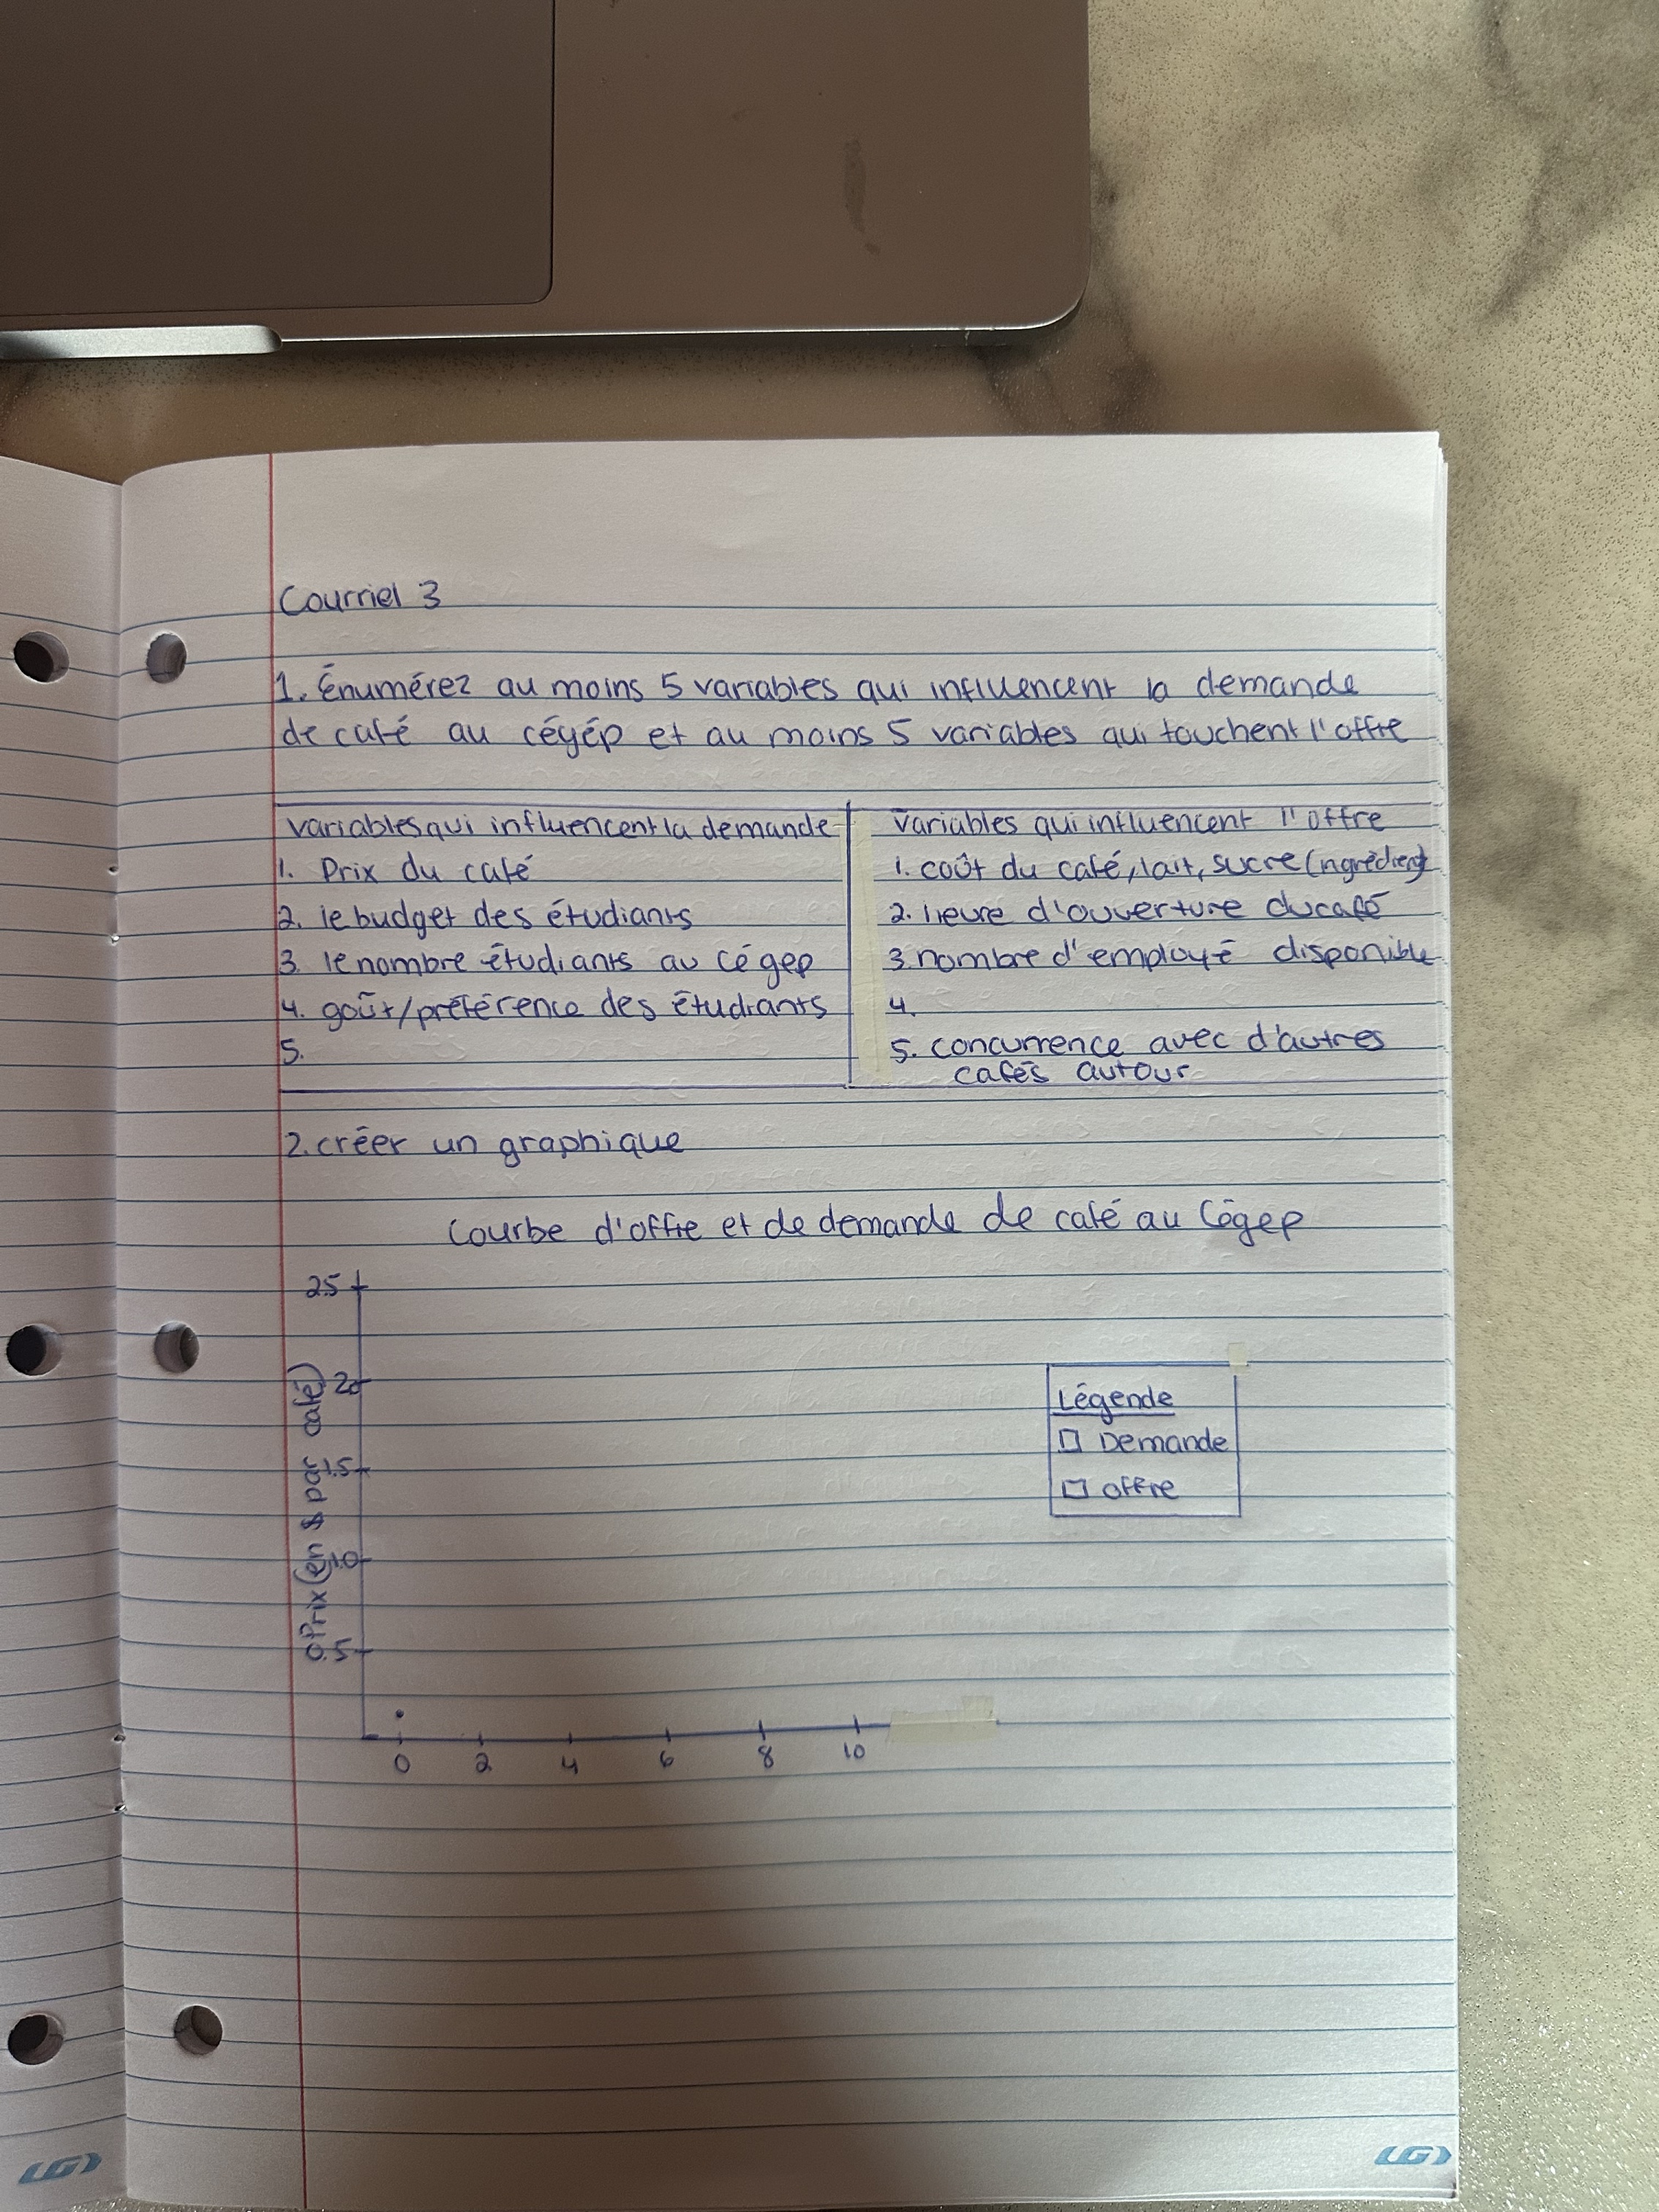 Courriel 3
1. Énumérez au moins 5 variables qui influencent la demande
de café au cégép et au moins 5 variables qui touchent l'offre
variables qui influencent la demande
1. Prix du café
2. le budget des étudiants
3. le nombre étudiants au cégep
4. goût/préférence des étudiants
5.
variables qui influencent l'offre
1. coût du café, lait, sucre (ingrédient)
2. heure d'ouverture du café
3. nombre d'employé disponible
4.
5. concurrence avec d'autres
cafés autour
2. créer un graphique
Courbe d'offre et de demande de café au Cégep
Prix (en $ par café)
2.5
2.0
1.5
1.0
0.5
0 2 4 6 8 10
Légende
Demande
offre
LG
LG